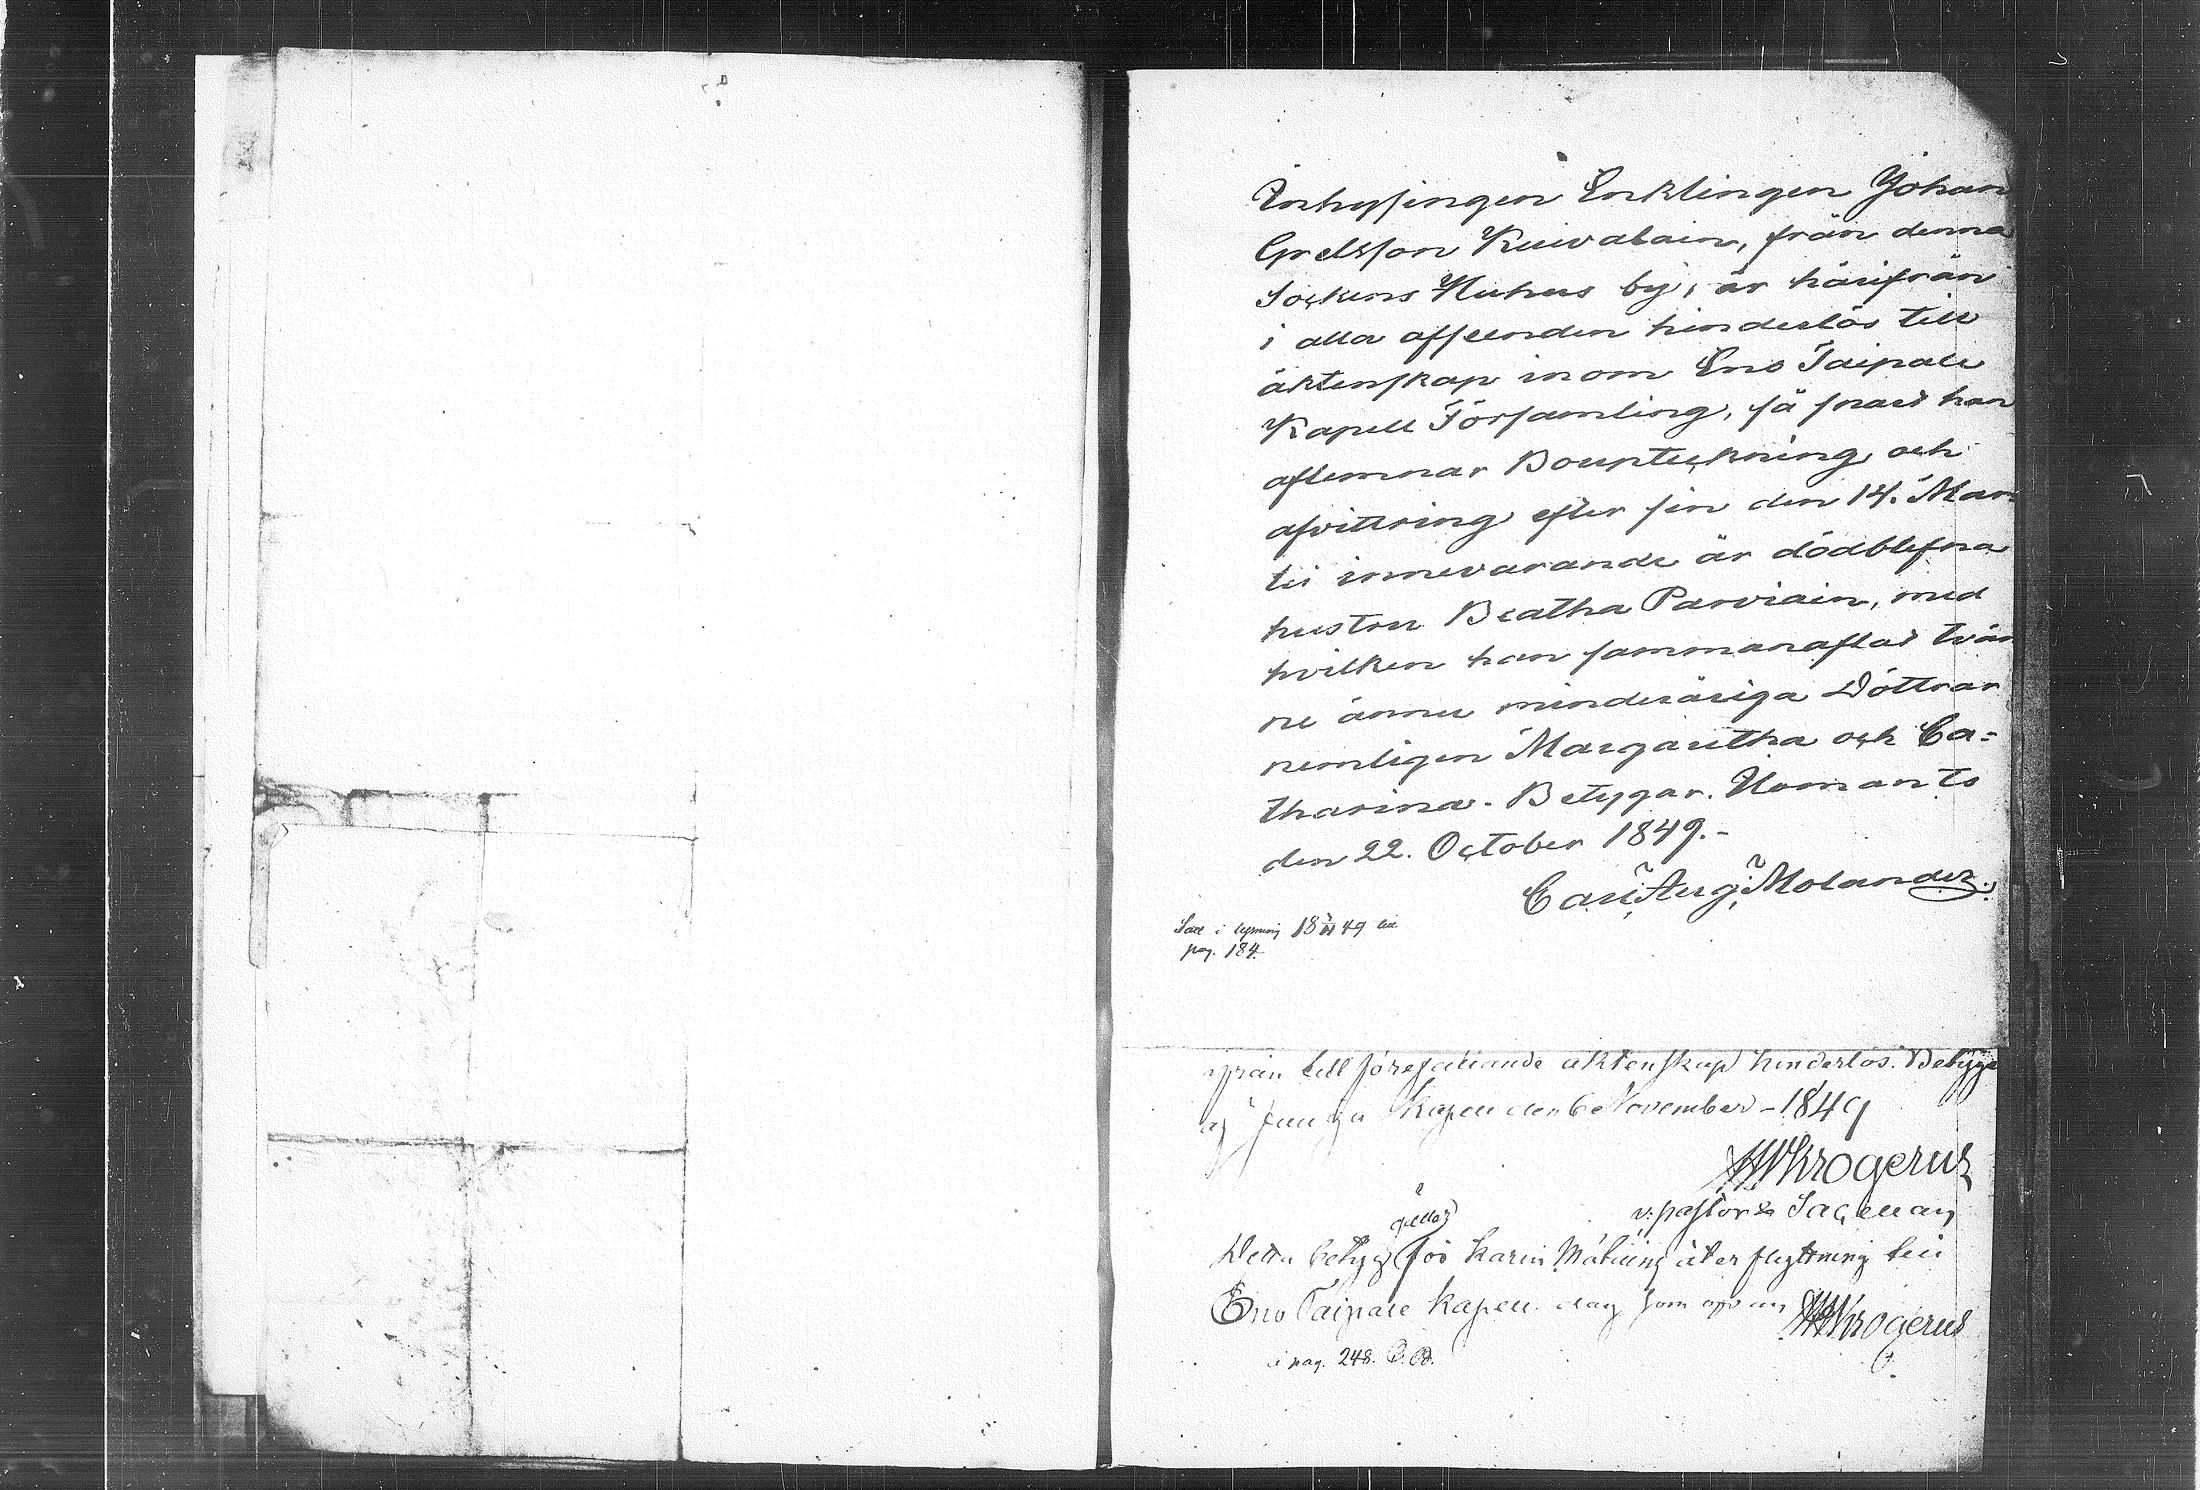 Inhysingen Enklingen Johan
Grelsson Kuivalain, från denna
Sockens Huhus by, är härifrån
i alla afseenden hinderlös till
äktenskap inom Eno Taipale
Kapell Församling, så snart han
aflemnar Boupteckning och
afvittring efter sin den 14. Mar-
tii innevarande år dödblefna
hustru Beatha Parviain, med
hvilken han sammanaflat tvän
ne ännu minderåriga Döttrar
nemligen Margaretha och Ca=
tharina. Betygar. Ilomants
den 22. October 1849.-
Carl Aug. Molander.
i lysning 18 49
pag. 184.
ifrån till förefallande äktenskap hinderlös. Betygas
af Juuga Kapell den 6 November - 1849
Krogerus
v: pastor &
gäller
Detta betyg för Karin återflyttning till
Eno Taipale Kapell. dag som ofvan Krogerus
i pag. 248.